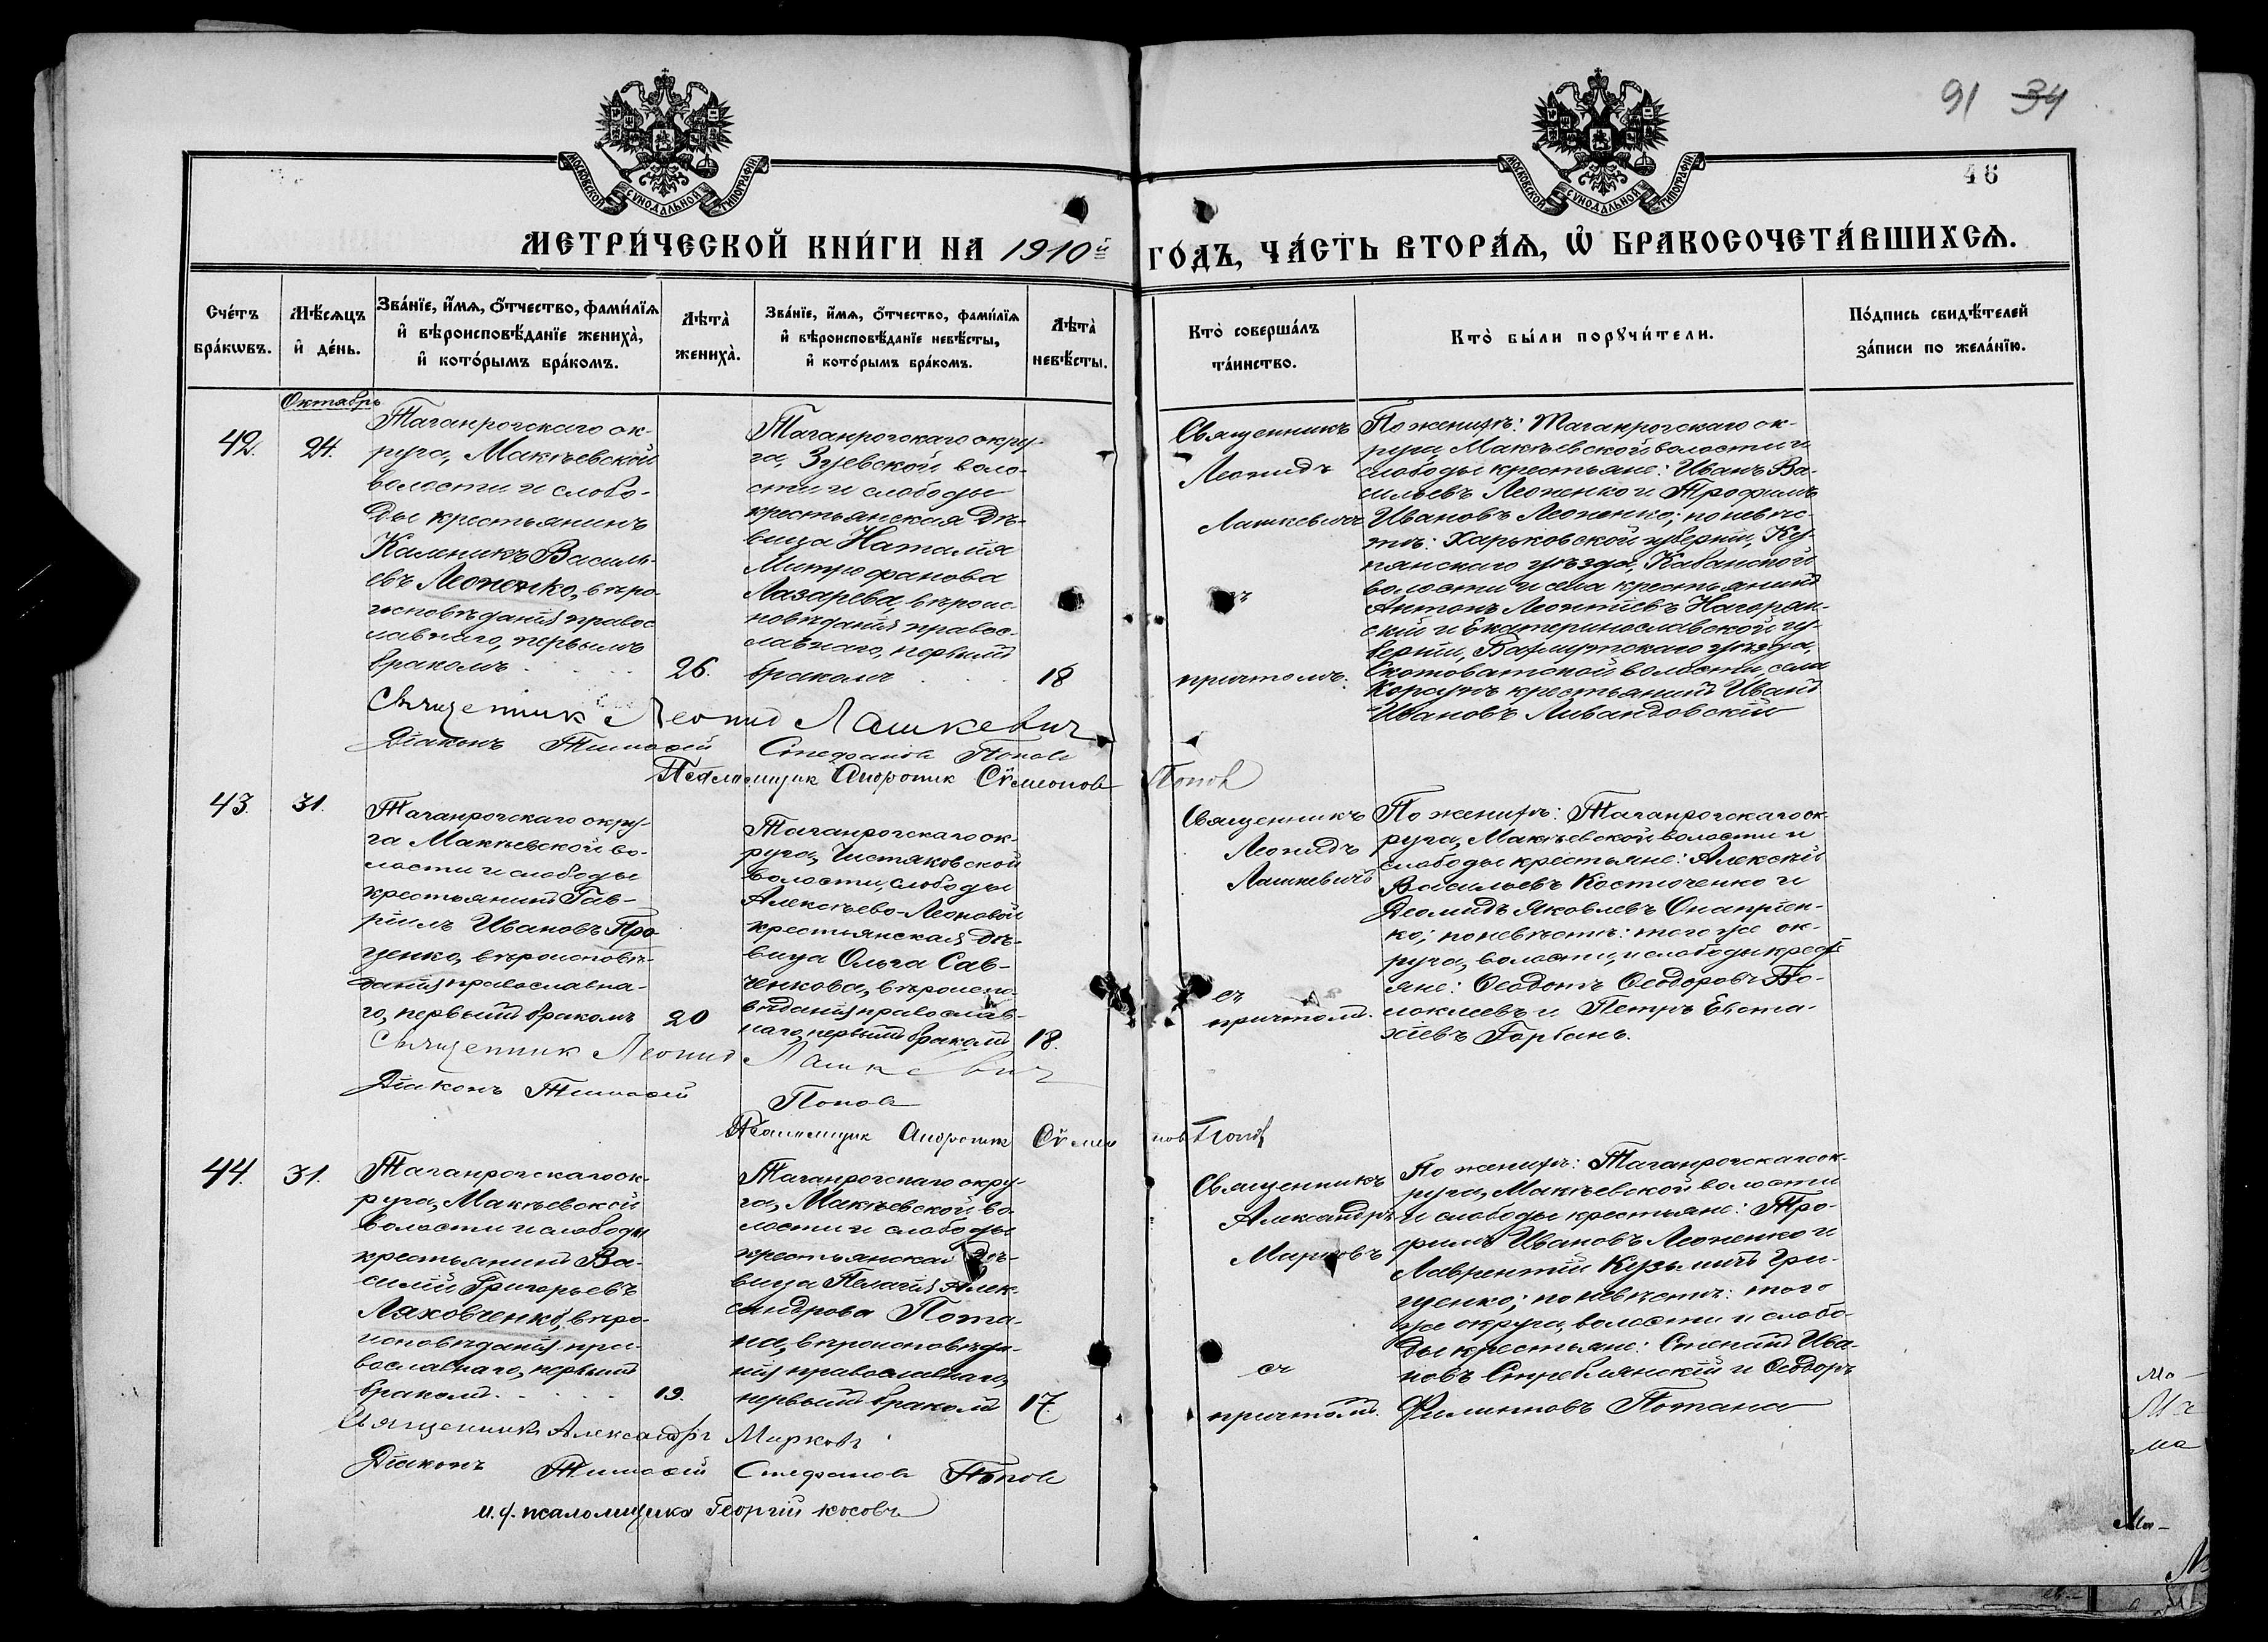 91 34
46
МОСКОВСКОЙ СУНОДАЛЬНОЙ ТИПОГРАФІИ
МОСКОВСКОЙ СУНОДАЛЬНОЙ ТИПОГРАФІИ
МЕТРИ́ЧЕСКОЙ КНИ́ГИ НА 1910й ГО́ДЪ, ЧА́СТЬ ВТОРА́Ѧ, Ѡ҆ БРАКОСОЧЕТА́ВШИХСѦ.
Сче́тъ
бра́кѡвъ.
Мѣ́сѧцъ
и҆ де́нь.
Зва́нїе, и҆́мѧ, ѻ҆́тчество, фами́лїѧ
и҆ вѣроисповѣ́данїе жениха̀,
и҆ кото́рымъ бра́комъ.
Лѣта̀
жениха̀.
Зва́нїе, и҆́мѧ, ѻ҆́тчество, фами́лїѧ
и҆ вѣроисповѣ́данїе невѣ́сты,
и҆ кото́рымъ бра́комъ.
Лѣта̀
невѣ́сты.
Кто̀ соверша́лъ
та́инство.
Кто̀ бы́ли порꙋчи́тели.
По́дпись свидѣ́телей
за́писи по жела́нїю.
Октябрь
42.
24.
Таганрогскаго ок-
руга, Макѣевской
волости и слобо-
ды крестьянинъ
Калникъ Василь-
евъ Леоненко, вѣро-
исповѣданія правос
лавнаго, первымъ
бракомъ
26.
Таганрогскаго окру-
га, Зуевской воло-
сти и слободы
крестьянская дѣ-
вица Наталія
Митрофанова
Лазарева, вѣроис-
повѣданія правос-
лавнаго, первымъ
бракомъ
18
Священникъ
Леонидъ
Лашкевичъ
съ
причтомъ.
По женихѣ: Таганрогскаго ок-
руга, Макѣевской волости и
слободы крестьяне: Иванъ Ва-
сильевъ Леоненко и Трофимъ
Ивановъ Леоненко; по невѣс-
тѣ: Харьковской губерніи, Ку-
пянскаго уѣзда, Кабанской
волости и села крестьянинъ
Антонъ Леонтіевъ Нагорян-
скій и Екатеринославской гу-
берніи, Бахмутскаго уѣзда,
Скотоватской волости, села
Корсунъ крестьянинъ Иванъ
Ивановъ Ливандовскій
Священник Леонид Лашкевич
Діаконъ Тимофей Стефанов Попов
Псаломщик Андроник Сѵмеонов Попов
43.
31.
Таганрогскаго окру-
га Макѣевской во-
лости и слободы
крестьянинъ Гав-
ріилъ Ивановъ Про
ценко, вѣроисповѣ-
данія православна-
го, первымъ бракомъ
20
Таганрогскаго ок-
руга, Чистяковской
волости, слободы
Алексѣево-Леоновой
крестьянская дѣ-
вица Ольга Сав-
ченкова, вѣроиспо-
вѣданія православ-
наго, первымъ бракомъ
18.
Священникъ
Леонидъ
Лашкевичъ
съ
причтомъ.
По женихѣ: Таганрогскаго ок-
руга, Макѣевской волости и
слободы крестьяне: Алексѣй
Васильевъ Костюченко и
Деомидъ Яковлевъ Онапріен-
ко; по невѣстѣ: того же ок-
руга, волости, и слободы кресть
яне: Ѳеодотъ Ѳеодоровъ Бо-
локлеевъ и Петръ Евста-
хіевъ Горбань.
Священник Леонид Лашкевич
Діаконъ Тимофей Попов
Псаломщик Андроник Сѵмеонов Попов
44.
31.
Таганрогскаго ок-
руга, Макѣевской
волости и слободы
крестьянинъ Ва-
силій Григорьевъ
Ляховченко, вѣро-
исповѣданія пра-
вославнаго, первымъ
бракомъ
19.
Таганрогскаго окру-
га, Макѣевской во-
лости и слободы
крестьянская дѣ-
вица Пелагія Алек-
сандрова Пота-
на, вѣроисповѣда-
нія православнаго,
первымъ бракомъ
17.
Священникъ
Александръ
Марковъ
съ
причтомъ.
По женихѣ: Таганрогскаго ок-
руга, Макѣевской волости
и слободы крестьяне: Тро-
фимъ Ивановъ Леоненко и
Лаврентій Кузьмичъ Гри-
ценко; по невѣстѣ: того
же округа, волости и слобо-
ды крестьяне: Стефанъ Ива-
новъ Стреблянскій и Ѳеодоръ
Филипповъ Потана
Священникъ Александръ Марковъ
Діаконъ Тимофей Стефанов Попов
и.д. псаломщика Георгій Косовъ